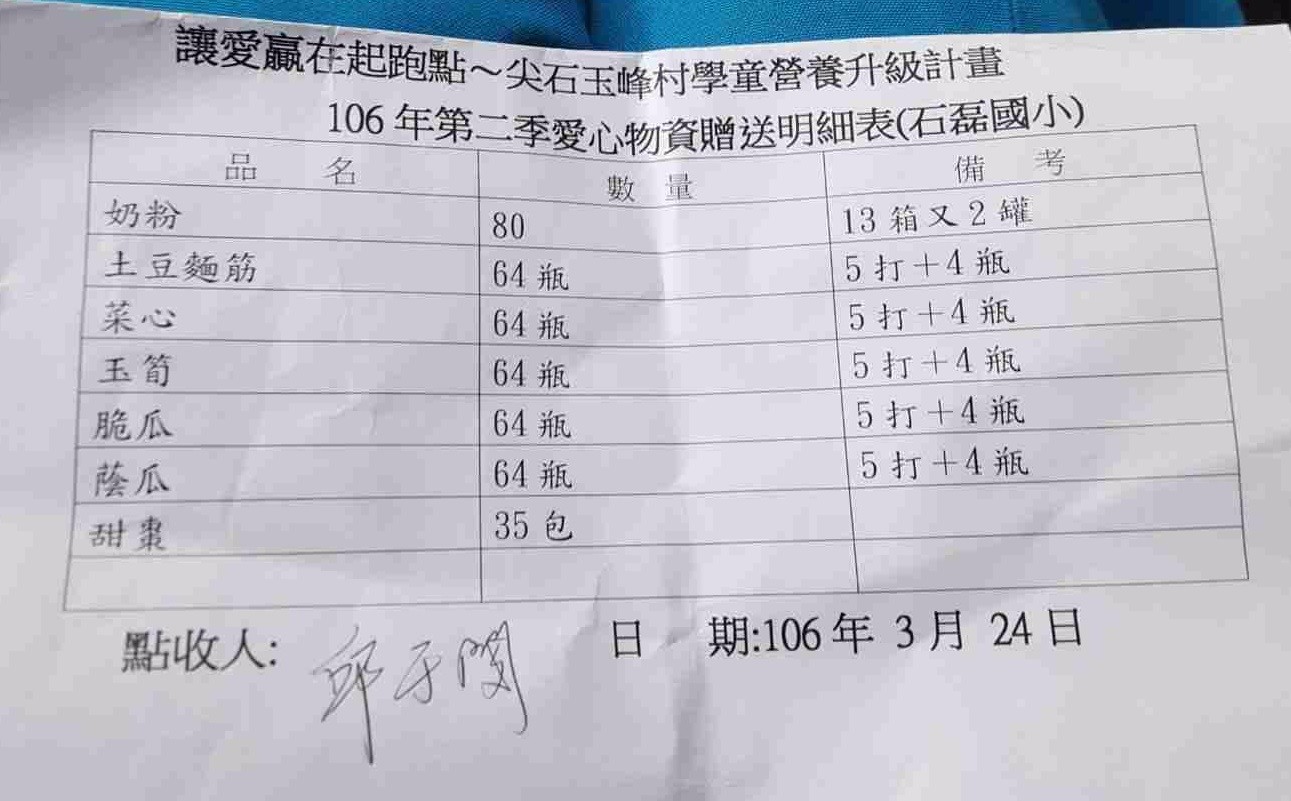 讓愛贏在起跑點～尖石玉峰村學童營養升級計畫
106 年第二季愛心物資贈送明細表(石磊國小)
品 名 數 量 備 考
奶粉 80 13 箱又 2 罐
土豆麵筋 64 瓶 5 打＋4 瓶
菜心 64 瓶 5 打＋4 瓶
玉筍 64 瓶 5 打＋4 瓶
脆瓜 64 瓶 5 打＋4 瓶
蔭瓜 64 瓶 5 打＋4 瓶
甜棗 35 包
點收人: 邱于 日 期:106 年 3 月 24 日